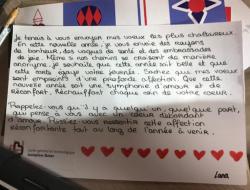 Je tenais à vous envoyer mes voeux les plus chaleureux.
En cette nouvelle année, je vous envoie des rayons
de bonheur, des vagues de santé et des embrassades
de joie. Même si nos chemins se croisent de manière
anonyme, je souhaite que cette année soit belle et que
cette carte égaye votre journée. Sachez que mes voeux
sont empreints d'une profonde affection. Que cette
nouvelle année soit une symphonie d'amour et de
réconfort. Réchauffant chaque coin de votre coeur.
Rappelez-vous qu'il y a quelqu'un, quelque part,
qui pense à vous avec un coeur débordant
d'amour. Puissiez-vous ressentir cette affection
réconfortante tout au long de l'année à venir.
Lana